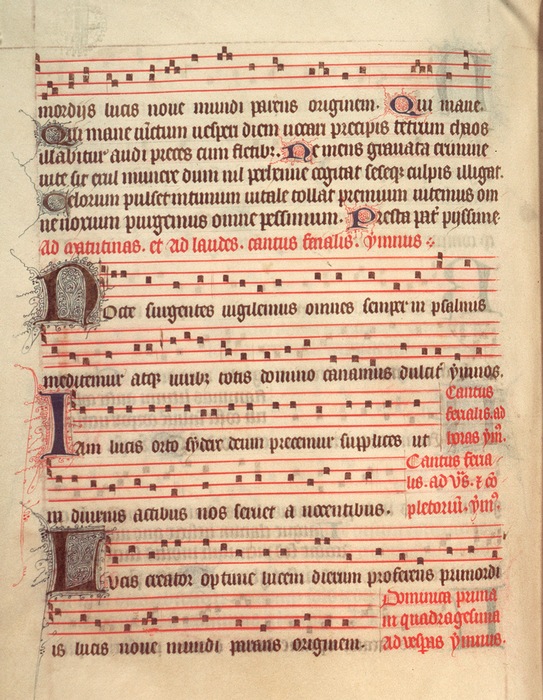 mordijs lucis noue mundi parens originem. Qui mane.
Qui mane iūctum uesperi diem uocari precipis tetrum chaos
illabitur audi preces cum fletibꝫ. Ne mens grauata crimine
uite sit exul munere dum nil perhenne cogitat seseqꝫ culpis illigat.
Celorum pulset intimum uitale tollat premium uitemus om
ne noxium purgemus omne pessimum. Presta pat̄ pijssime
Ad matutinas. et Ad laudes. cantus ferialis. ymnus
Nocte surgentes uigilemus omnes semper in psalmis
meditemur atqꝫ uiribꝫ totis domino canamus dulcit̄ ymnos.
Cantus
ferialis. ad
horas ym̄.
Iam lucis orto sydere deum precemur supplices ut
Cantus feria
lis. ad vs̄. ⁊ cō
pletoriū. ym̄.
in diurnis actibus nos seruet a nocentibus.
Lucis creator optime lucem dierum proferens primordi
Dominica prima
in quadragesima
Ad uesp̄as ymnus.
is lucis noue mundi parans originem.